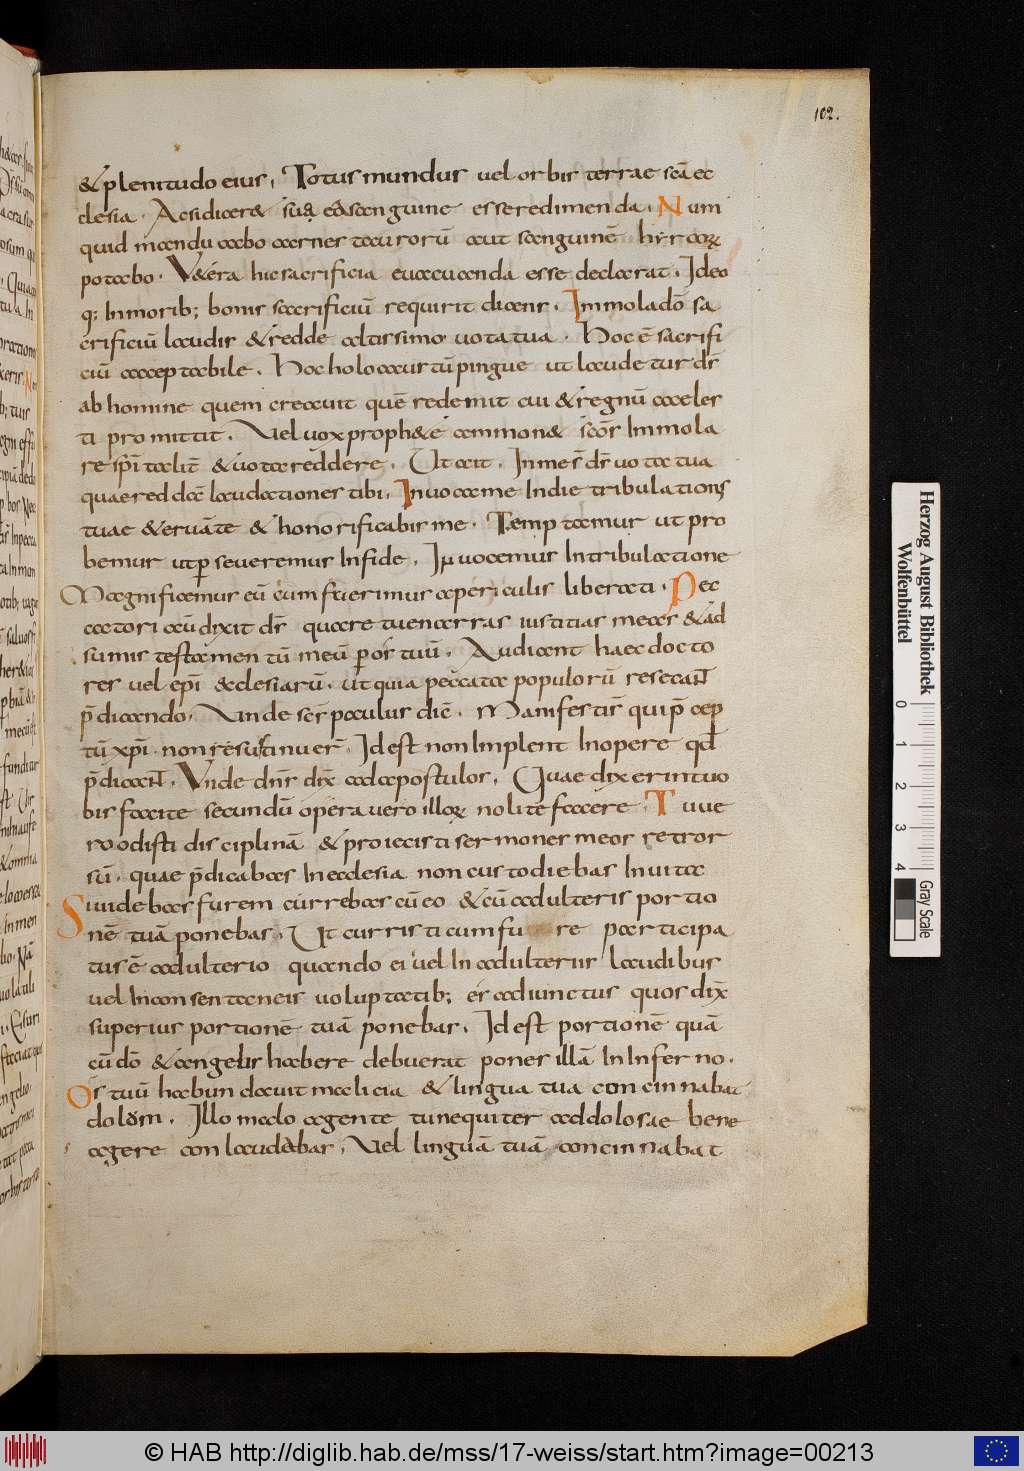 102.
& plenitudo eius, Totus mundus vel orbis terrae scā ec
clesia. Ac si dicer& suā eā sanguine esse redimenda. Num
quid manducabo carnes taurorū aut sanguinē hyrcorꝝ
potabo. V&era hic sacrificia euacuanda esse declarat. Ideo
q; In morib; bonis sacrificiū requirit dicens. Immola dō sa
crificiū laudis & redde altissimo uota tua. Hoc ē sacrifi
ciū acceptabile. Hoc holocaustū pingue ut laudetur ds̄
ab homine quem creauit quē redemit cui & regnū caeles
ti promittit. Vel uox proph&ae ammon& scōs Immola
re spī talit̄ & uota reddere. Ut ait. In me s̄ ds̄ uota tua
quae reddā laudationes tibi. Inuoca me In die tribulationis
tuae & eruā te & honorificabis me. Temptamur ut pro
bemur ut ꝑseueremus In fide. Inuocemus In tribulatione
Magnificemus eū cum fuerimus a periculis liberati. Pec
catori aū dixit ds̄ quare tu enarras iustitias meas & ad
sumis testamentū meū ꝑ os tuū. Audiant haec docto
res vel epī aecclesiarū. ut quia peccata populorū resecant
p̄dicando. Unde scr̄ paulus dic̄. Manifestis̄ qui p̄cep
tū xpī. non resultinuer̄. Id est non Implent In opere qd̄
p̄dicant. Vnde dn̄s dix̄ ad apostulos. Quae dixerint uo
bis facite secundū opera vero illorꝝ nolite facere. Tu ue
ro odisti disciplinā & proiecisti sermones meos retror
sū. quae p̄dicabas In ecclesia non custodiebas In uita
Si uidebas furem currebas cū eo & cū adulteris portio
nē tuā ponebas. Ut curristi cum fu re particpa
tus ē adulterio quando ei vel In adulteriis laudibus
vel In consentaneis uoluptatib; es adiunctus quos dix̄
superius portionē tuā ponebas. Id est portionē quā
cū dō & angelis habere debueras pones illā In Inferno.
Os tuū habundauit malicia & lingua tua concinnabat
dolum. Illo malo agente tu nequiter ad dolosae bene
agere conlaudabas, Vel linguā tuā concinnabat
Herzog August Bibliothek
Wolfenbüttel
0 1 2 3 4
Gray Scale
© HAB http://diglib.hab.de/mss/17-weiss/start.htm?image=00213